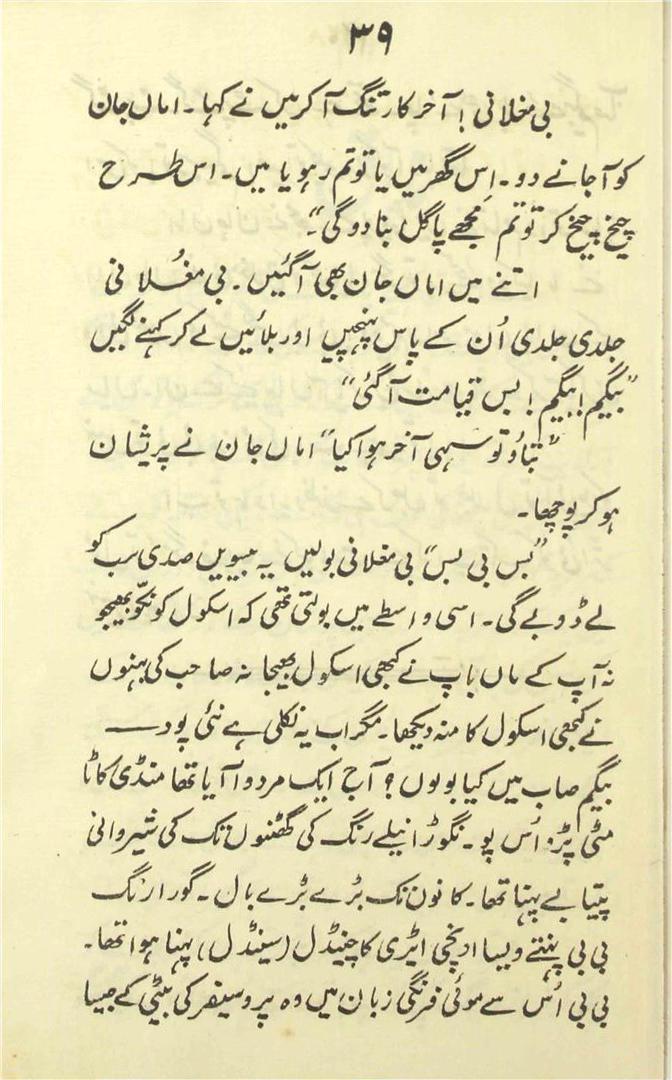 ۳۹
بی مغلانی! آخر کار تنگ آ کر میں نے کہا۔ اماں جان
کو آ جانے دو۔ اِس گھر میں یا تو تم رہو یا میں۔ اس طرح
چیخ چیخ کر تو تم مجھے پاگل بنا دو گی"۔
اتنے میں اماں جان بھی آ گئیں۔ بی مغُلانی
جلدی جلدی اُن کے پاس پہنچیں اور بلائیں لے کر کہنے لگیں
"بیگم! بیگم! بس قیامت آ گئی"
"بتاؤ تو سہی آخر ہوا کیا" اماں جان نے پریشان
ہو کر پوچھا۔
"بس بی بس" بی مغلانی بولیں یہ بیسویں صدی سب کو
لے ڈوبے گی۔ اسی واسطے میں بولتی تھی کہ اسکول کو نکّو بھیجو
نہ آپ کے ماں باپ نے کبھی اسکول بھیجا نہ صاحب کی بہنوں
نے کبھی اسکول کا منہ دیکھا۔ مگر اب یہ نکلی ہے نئی پود ——
بیگم صاب میں کیا بولوں؟ آج ایک مردوا آیا تھا منڈی کاٹا
مٹی پڑو اُس پو۔ نگوڑا نیلے رنگ کی گھٹنوں تک کی شیروانی
پہنا تھا۔ کانوں تک بڑے بڑے بال۔ گورا رنگ
بی بی پہنتے ویسا اونچی ایڑی کا چنیڈل (سینڈل) پہنا ہوا تھا۔
بی بی اُس سے موئی فرنگی زبان میں وہ پروسیفر کی بیٹی کے جیسا